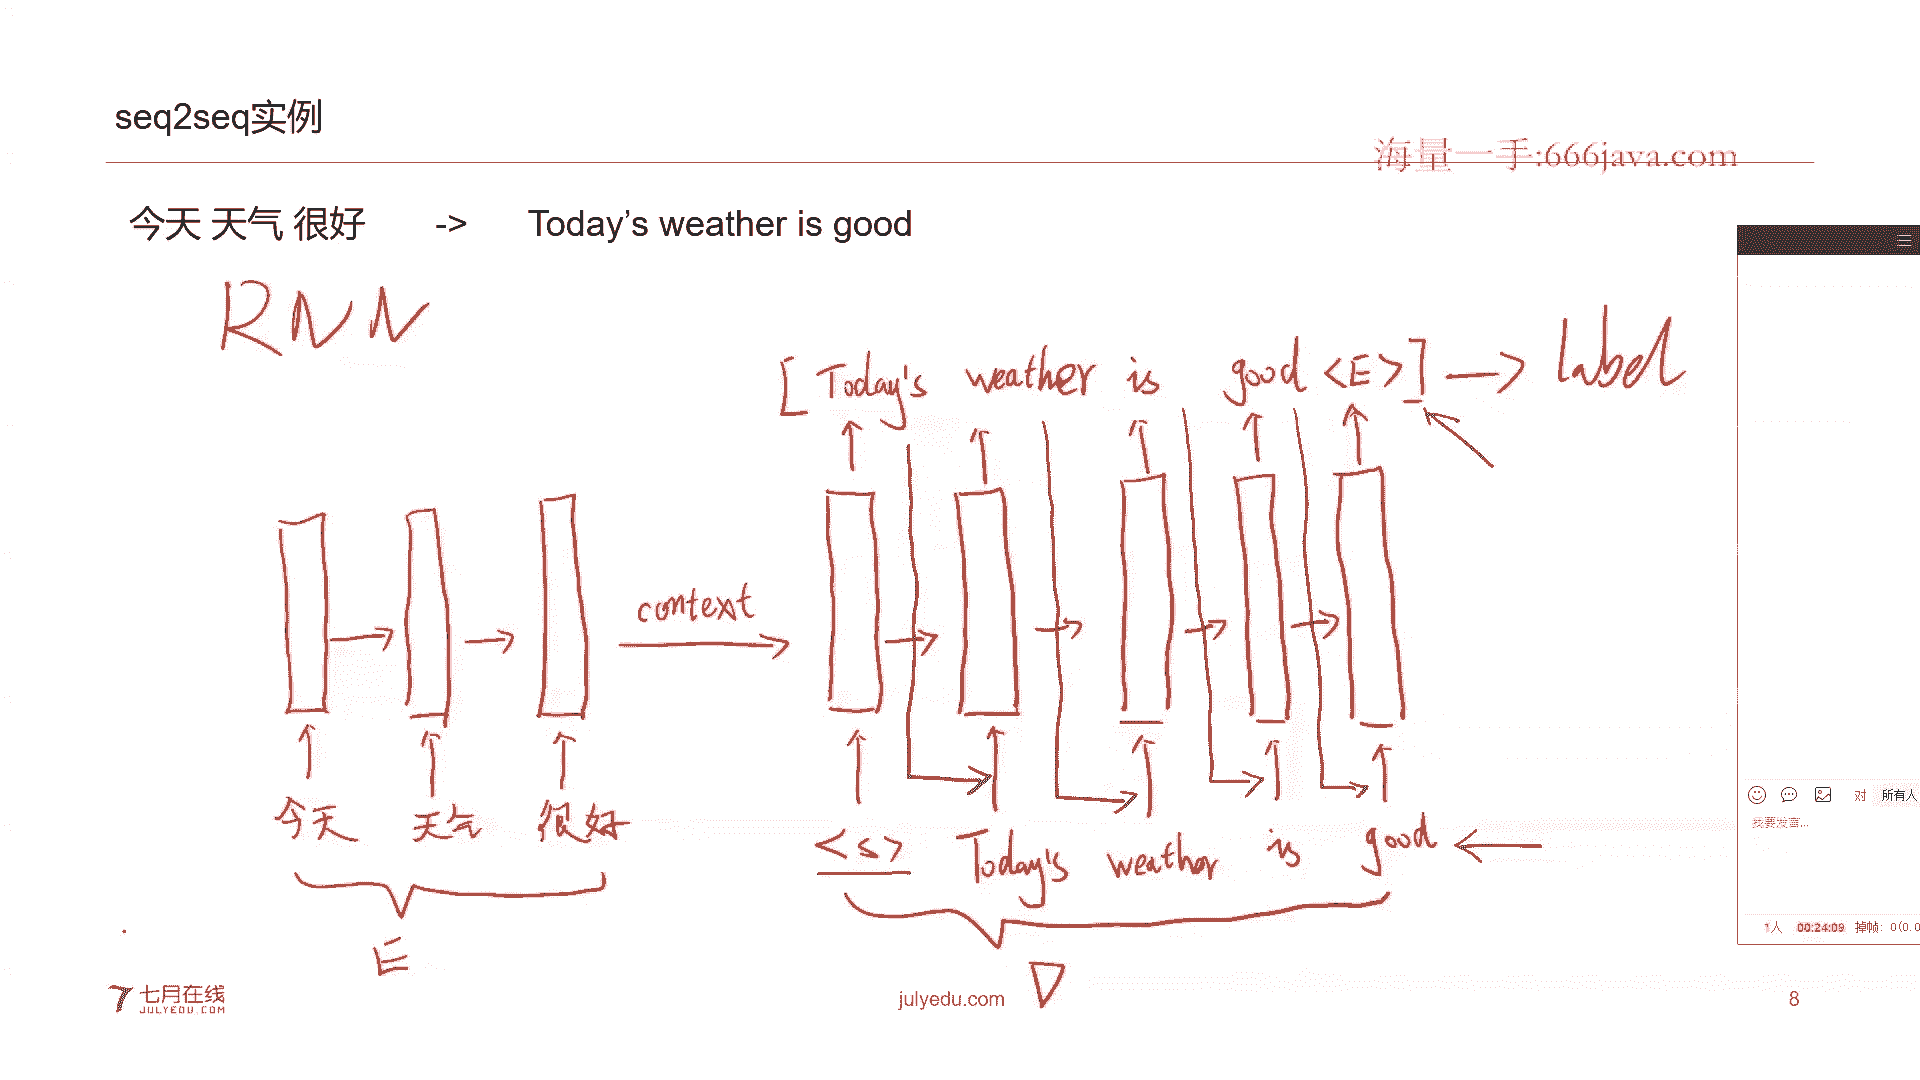 seq2seq实例
海量一手:666java.com
今天 天气 很好 -> Today's weather is good
RNN
[ Today's weather is good <E> ] → label
context
今天 天气 很好
<s> Today's weather is good
E
D
对 所有人
我要发言...
1人 00:24:09 掉帧: 0(0.0
七月在线
JULYEDU.COM
julyedu.com
8